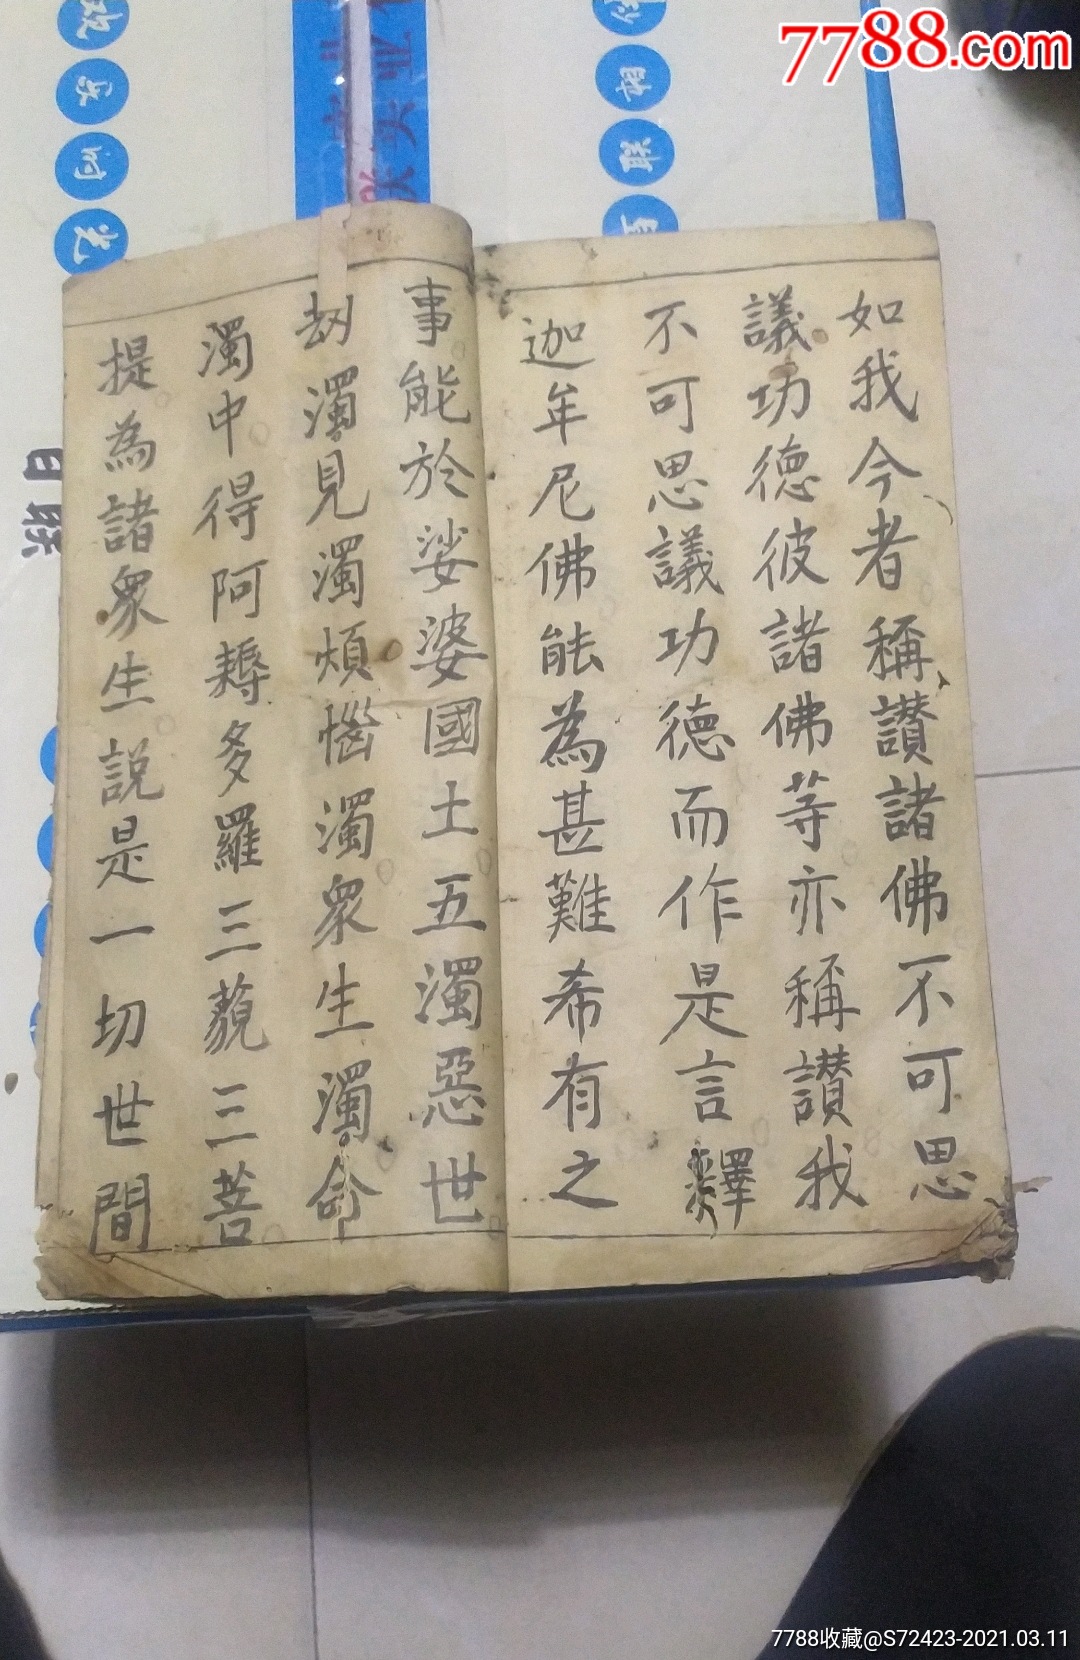 7788.com
如我今者稱讃諸佛不可思
議功德彼諸佛等亦稱讃我
不可思議功德而作是言釋
迦牟尼佛能為甚難希有之
事能於娑婆國土五濁惡世
刼濁見濁煩惱濁眾生濁命
濁中得阿耨多羅三藐三菩
提為諸眾生說是一切世間
7788收藏@S72423-2021.03.11